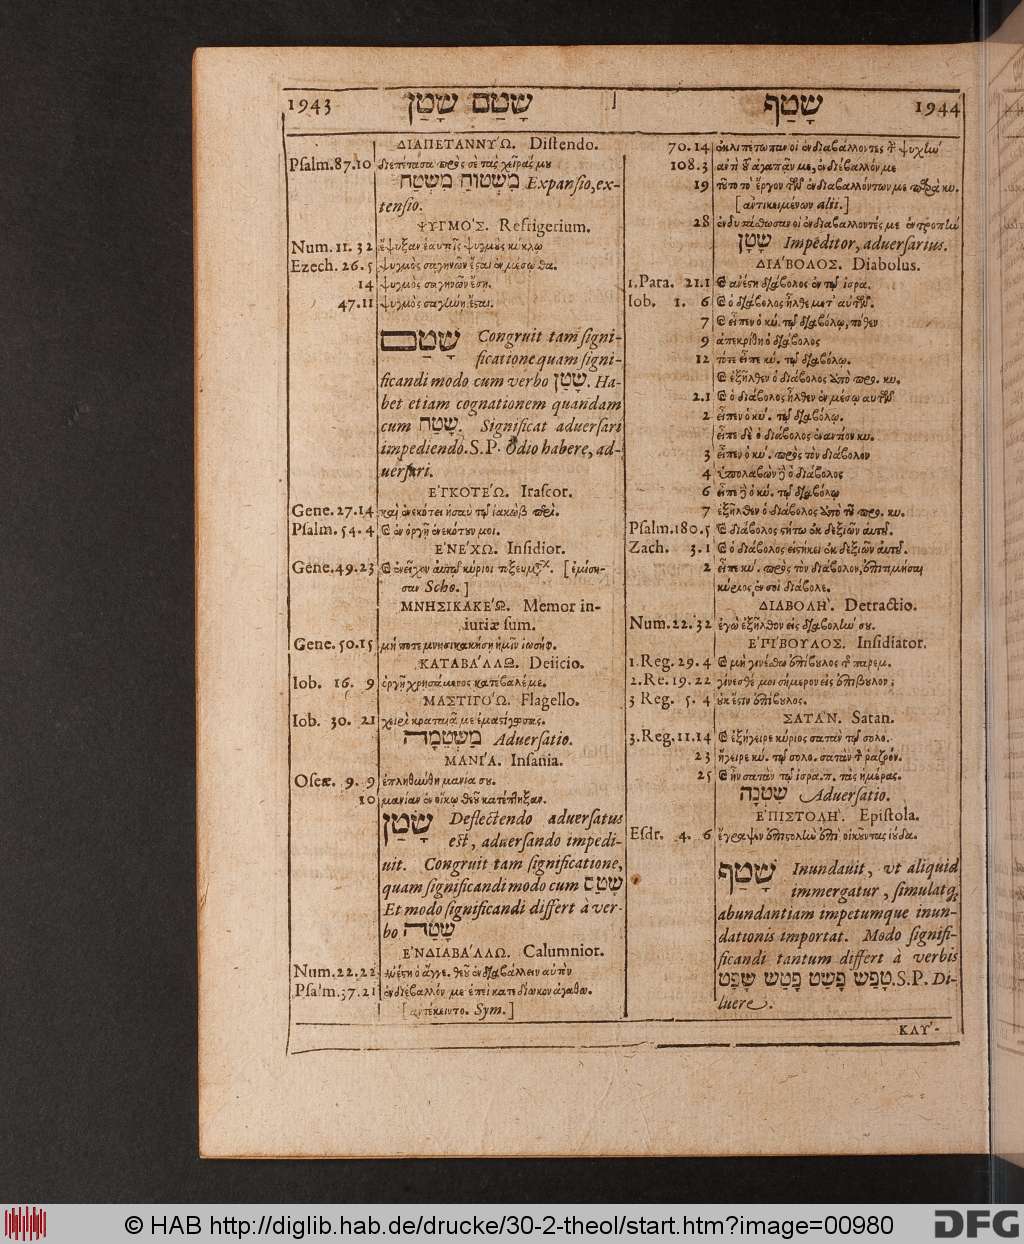 1943 שָׂטַם שָׂטַן
שָׁטַף 1944
ΔΙΑΠΕΤΑΝΝΥΏ. Distendo.
Psalm.87.10 διεπέτασα πρὸς σὲ τὰς χεῖράς μου
מִשְׁטוֹחַ מִשְׁטַח Expansio, ex-
tensio.
ΨΥΓΜΌΣ. Refrigerium.
Num. 11. 32 ἔψυξαν ἑαυτοῖς ψυγμοὺς κύκλῳ
Ezech. 26. 5 ψυγμὸς σαγηνῶν ἔσται ἐν μέσῳ θα.
14 ψυγμὸς σαγηνῶν ἔση.
47.11 ψυγμὸς σαγηνῶν ἔσται.
שָׂטַם Congruit tam signi-
ficatione quam signi-
ficandi modo cum verbo שָׂטַן. Ha-
bet etiam cognationem quandam
cum שָׁטַח. Significat aduersari
impediendo. S.P. Odio habere, ad-
uersari.
ΕΓΚΟΤΕΏ. Irascor.
Gene. 27.14 καὶ ἐνεκότει ἠσαῦ τῷ ἰακὼβ περὶ.
Psalm. 54. 4 ἐν ὀργῇ ἐνεκότουν μοι.
ΕΝΕΧΩ. Insidior.
Gene. 49. 23 ἐνεῖχον αὐτῷ κύριοι τοξευμάτ. [ἐμίση-
σαν Scho.]
ΜΝΗΣΙΚΑΚΕΏ. Memor in-
iuriæ sum.
Gene. 50.15 μή ποτε μνησικακήσῃ ἡμῖν ἰωσήφ.
ΚΑΤΑΒΆΛΛΩ. Deiicio.
Iob. 16. 9 ὀργῇ χρησάμενος κατέβαλέ με.
ΜΑΣΤΙΓΌΩ. Flagello.
Iob. 30. 21 χειρὶ κραταιᾷ με ἐμαστίγωσας.
מַשְׂטֵמָה Aduersatio.
ΜΑΝΊΑ. Insania.
Oseæ. 9. 9 ἐπληθύνθη μανία σου.
10 μανίαν ἐν οἴκῳ θεοῦ κατέπηξαν.
שָׂטַן Deflectendo aduersatus
est, aduersando impedi-
uit. Congruit tam significatione,
quam significandi modo cum שָׂטַם
Et modo significandi differt à ver-
bo שָׂטָה
ΕΝΔΙΑΒΆΛΛΩ. Calumnior.
Num. 22. 22 ἀνέστη ὁ ἄγγε. θεοῦ ἐνδιαβάλλειν αὐτὸν
Psalm. 37. 21 ἐνδιέβαλλόν με ἐπεὶ κατεδίωκον ἀγαθω.
[ἀντέκειντο. Sym.]
70. 14 ἐκλιπέτωσαν οἱ ἐνδιαβάλλοντες τ ψυχὴν
108. 3 ἀντὶ τοῦ ἀγαπᾶν με, ἐνδιέβαλλόν με
19 τοῦτο τὸ ἔργον τῶν ἐνδιαβαλλόντων με παρὰ κυ.
[ἀντικειμένων alii.]
28 ἐνδυσάσθωσαν οἱ ἐνδιαβάλλοντές με ἐντροπὴν
שָׂטָן Impeditor, aduersarius.
ΔΙΆΒΟΛΟΣ. Diabolus.
1. Para. 21. 1 ἀνέστη διάβολος ἐν τῷ ἰσρα.
Iob. 1. 6 ὁ διάβολος ἦλθε μετ' αὐτῶν.
7 εἶπεν ὁ κύ. τῷ διαβόλῳ, πόθεν
9 ἀπεκρίθη ὁ διάβολος
12 τότε εἶπε κύ. τῷ διαβόλῳ.
ἐξῆλθεν ὁ διάβολος ἀπὸ προ. κυ.
2. 1 ὁ διάβολος ἦλθεν ἐν μέσῳ αὐτῶν
2 εἶπεν ὁ κύ. τῷ διαβόλῳ.
εἶπε δὲ ὁ διάβολος ἐναντίον κυ.
3 εἶπεν ὁ κύ. πρὸς τὸν διάβολον
4 ὑπολαβὼν δ ὁ διάβολος
6 εἶπε δ ὁ κύ. τῷ διαβόλῳ
7 ἐξῆλθεν ὁ διάβολος ἀπὸ τοῦ προ. κυ.
Psalm. 180. 5 διάβολος στήτω ἐκ δεξιῶν αὐτοῦ.
Zach. 3. 1 ὁ διάβολος εἱστήκει ἐκ δεξιῶν αὐτοῦ.
2 εἶπε κύ. πρὸς τὸν διάβολον, ἐπιτιμήσαι
κύριος ἐν σοὶ διάβολε.
ΔΙΑΒΟΛΗ. Detractio.
Num. 22. 32 ἐγὼ ἐξῆλθον εἰς διαβολήν σου.
ΕΠΙΒΟΥΛΟΣ. Insidiator.
1. Reg. 29. 4 μὴ γινέσθω ἐπίβουλος τ παρεμ.
2. Re. 19. 22 γίνεσθέ μοι σήμερον εἰς ἐπίβουλον;
3 Reg. 5. 4 οὐκ ἔστιν ἐπίβουλος.
ΣΑΤΑΝ. Satan.
3. Reg. 11. 14 ἐξήγειρε κύριος σατὰν τῷ σολο.
23 ἤγειρε κύ. τῷ σολο. σατὰν τ ῥαζρόν.
25 ἦν σατὰν τῷ ἰσρα. π. τὰς ἡμέρας.
שִׂטְנָה Aduersatio.
ΕΠΙΣΤΟΛΗ. Epistola.
Esdr. 4. 6 ἔγραψεν ἐπιστολὴν ἐπὶ οἰκοῦντας ἰούδα.
שָׁטַף Inundauit, vt aliquid
immergatur, simulatq;
abundantiam impetumque inun-
dationis importat. Modo signifi-
ficandi tantum differt à verbis
טָפַשׁ פָּשַׁט פָּטַשׁ שָׁפַט. S.P. Di-
luere.
ΚΛΥ-
© HAB http://diglib.hab.de/drucke/30-2-theol/start.htm?image=00980
DFG